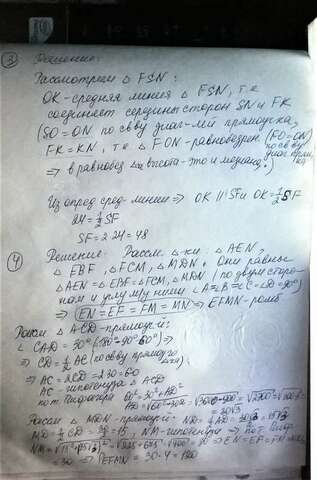 ③ Решение:
Рассмотрим △ FSN:
OK - средняя линия △ FSN, т.к
соединяет середины сторон SN и FN
(SO = ON по св-ву диаг-лей прямоуг-ка,
FK = KN, т.к △ FON - равнобедрен. (FO = ON
по св-ву
диаг.
⇒ в равнобед. △ высота - это и медиана.)
Из опред. сред. линии ⇒ OK || SF и OK = 1/2 SF
24 = 1/2 SF
SF = 2·24 = 48
④ Решение: Рассм. △-ки △ AEN,
△ EBF, △ FCM, △ MDN. Они равны
△ AEN = △ EBF = △ FCM = △ MDN (по двум сторо-
нам и углу м/у ними ∠A = ∠B = ∠C = ∠D = 90°)
⇒ EN = EF = FM = MN ⇒ EFMN - ромб
Рассм △ ACD - прямоуг.:
∠ CAD = 30° (180° - 90° - 60°) ⇒
⇒ CD = 1/2 AC (по св-ву прямоуг.
⇒ AC = 2CD = 2·30 = 60
AC - гипотенуза △ ACD
по т. Пифагора 60² = 30² + AD²
AD = √60² - 30² = √3600 - 900 = √2700
= 30√3
Рассм △ MDN - прямоуг.: ND = 1/2 AD = 30√3/2 = 15√3
MD = 1/2 CD = 30/2 = 15, NM - гипотенуза ⇒ по т. Пифаг.
NM = √15² + (15√3)² = √225 + 675 = √900 = 30 ⇒ EN = EF = FM =
= 30 ⇒ P EFMN = 30·4 = 120